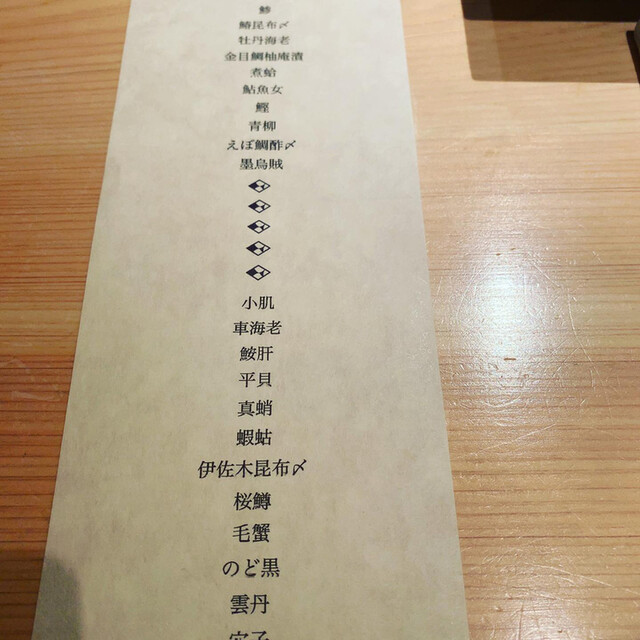 鯵
鰆昆布〆
牡丹海老
金目鯛柚庵漬
煮蛤
鮎魚女
鰹
青柳
えぼ鯛酢〆
墨烏賊
小肌
車海老
鮟肝
平貝
真蛸
蝦蛄
伊佐木昆布〆
桜鱒
毛蟹
のど黒
雲丹
穴子